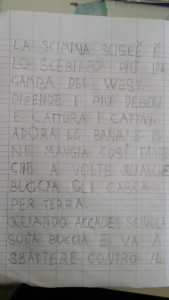 LA SCIMMIA SCISCÈ È
LO SCERIFFO PIÙ IN
GAMBA DEL WEST.
DIFENDE I PIÙ DEBOLI
E CATTURA I CATTIVI
ADORA LE BANANE E
NE MANGIA COSÌ TANTE
CHE A VOLTE QUALCHE
BUCCIA GLI CASCA
PER TERRA.
QUANDO ACCADE, SCIVOLA
SULLA BUCCIA E VA A
SBATTERE CONTRO IL